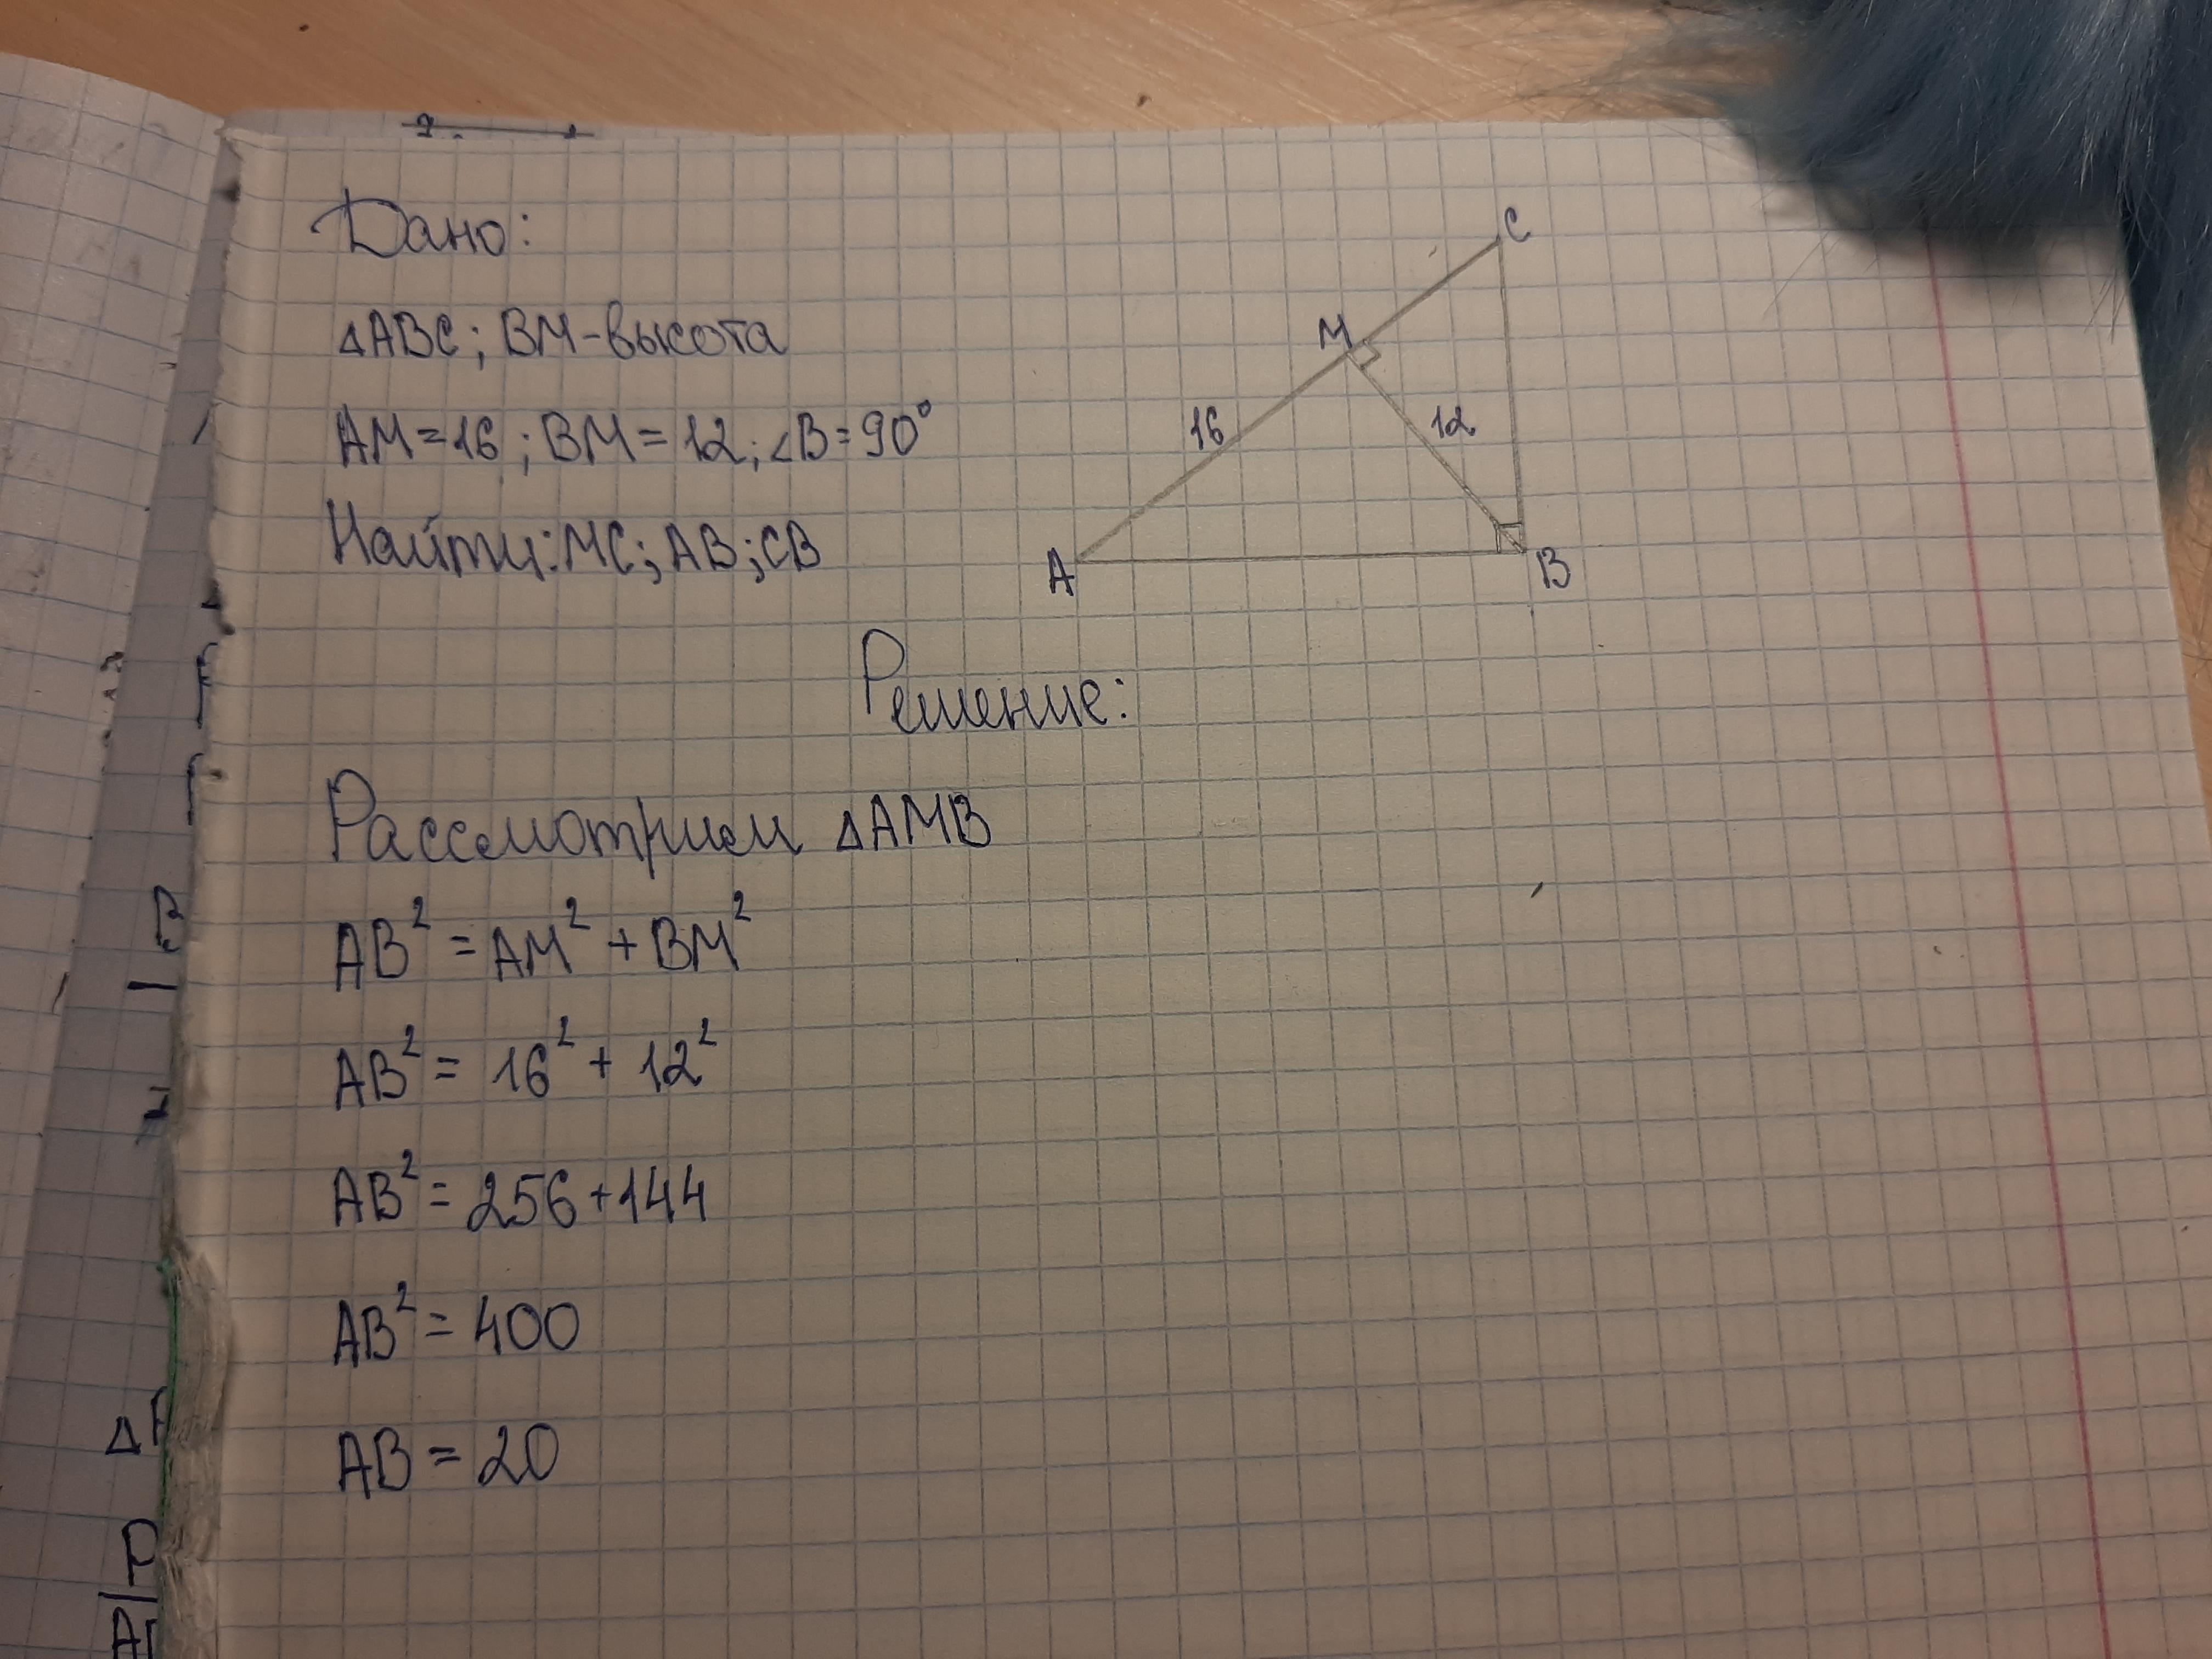 Дано:
△ABC; BM-высота
AM=16; BM=12; ∠B=90°
Найти: MC; AB; CB
C
M
16
12
A
B
Решение:
Рассмотрим △AMB
AB² = AM² + BM²
AB² = 16² + 12²
AB² = 256+144
AB² = 400
AB = 20